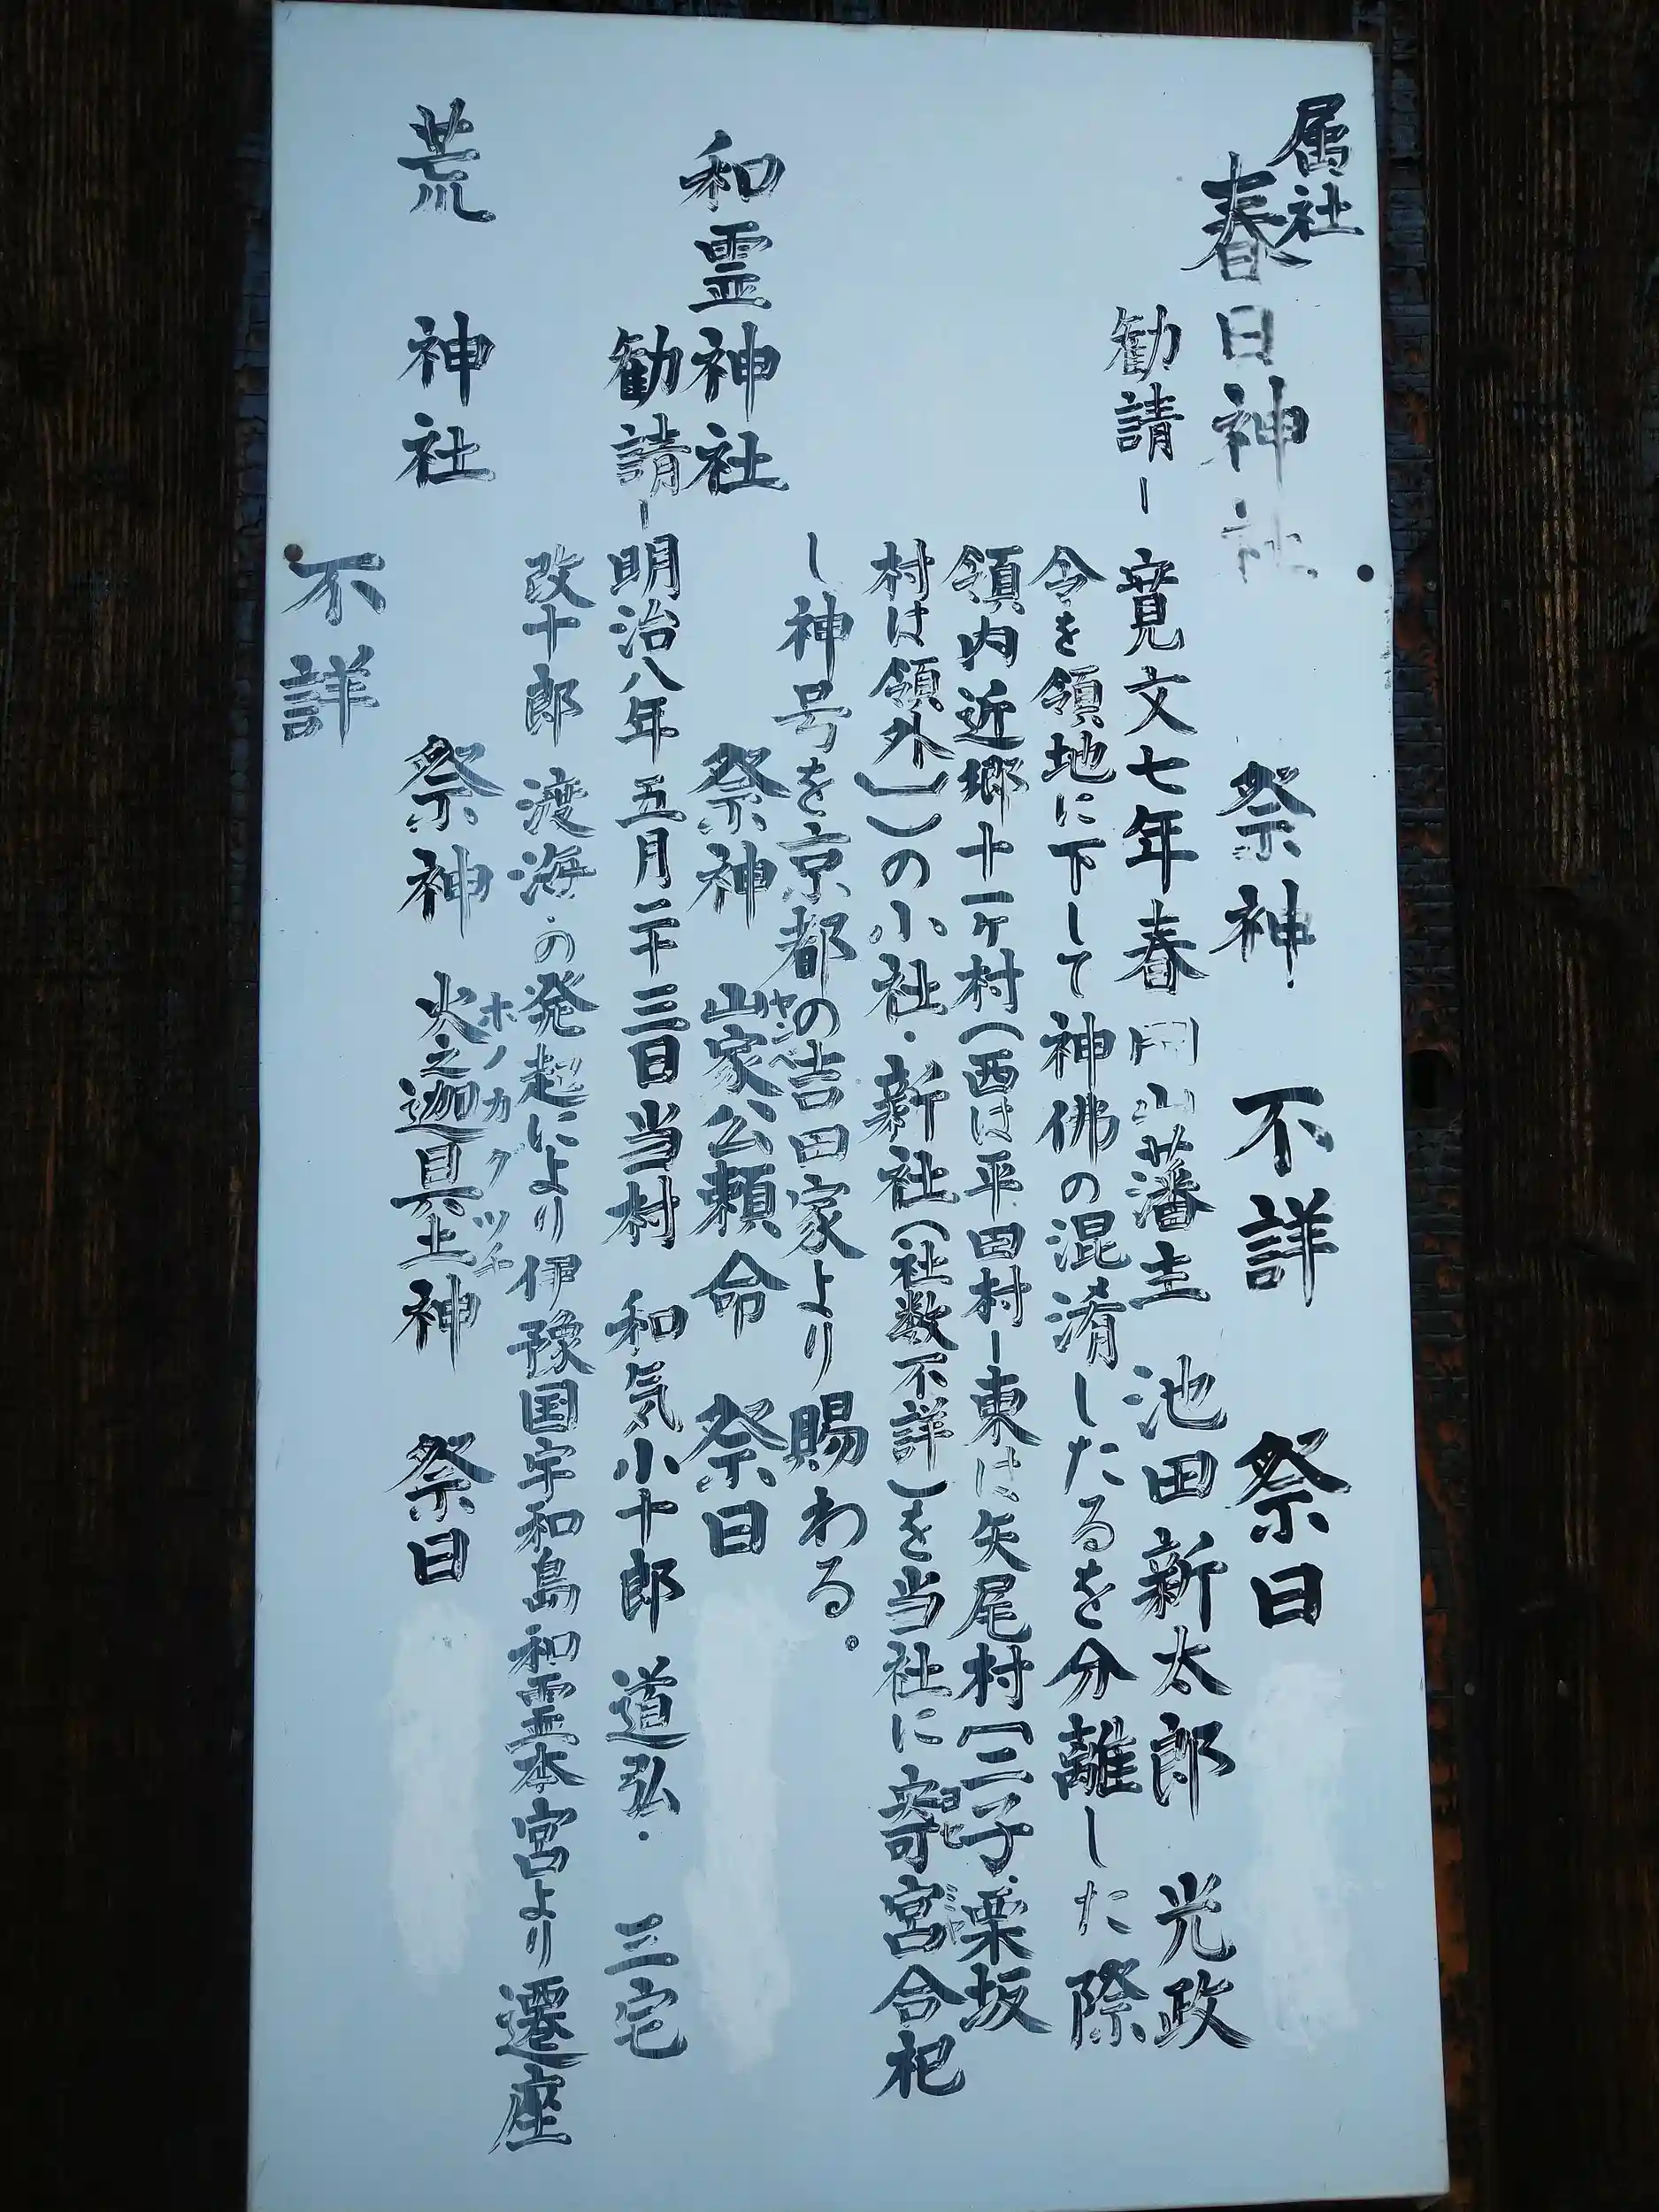 属社
春日神社 祭神 不詳 祭日
勧請ー寛文七年春 岡山藩主 池田新太郎 光政
令を領地に下して神佛の混淆したるを分離した際
領内近郷十一ヶ村(西は平田村ー東は矢尾村[二子.栗坂
村は領外])の小社・新社(社数不詳)を当社に寄宮合祀
し神号を京都の吉田家より賜わる。
和霊神社 祭神 山家公頼命 祭日
勧請ー明治八年五月二十三日当村 和気小十郎 道弘・三宅
改十郎 渡海・の発起により伊豫国宇和島和霊本宮より遷座
荒神社 祭神 火之迦具土神 祭日
ホノカグツチ
不詳